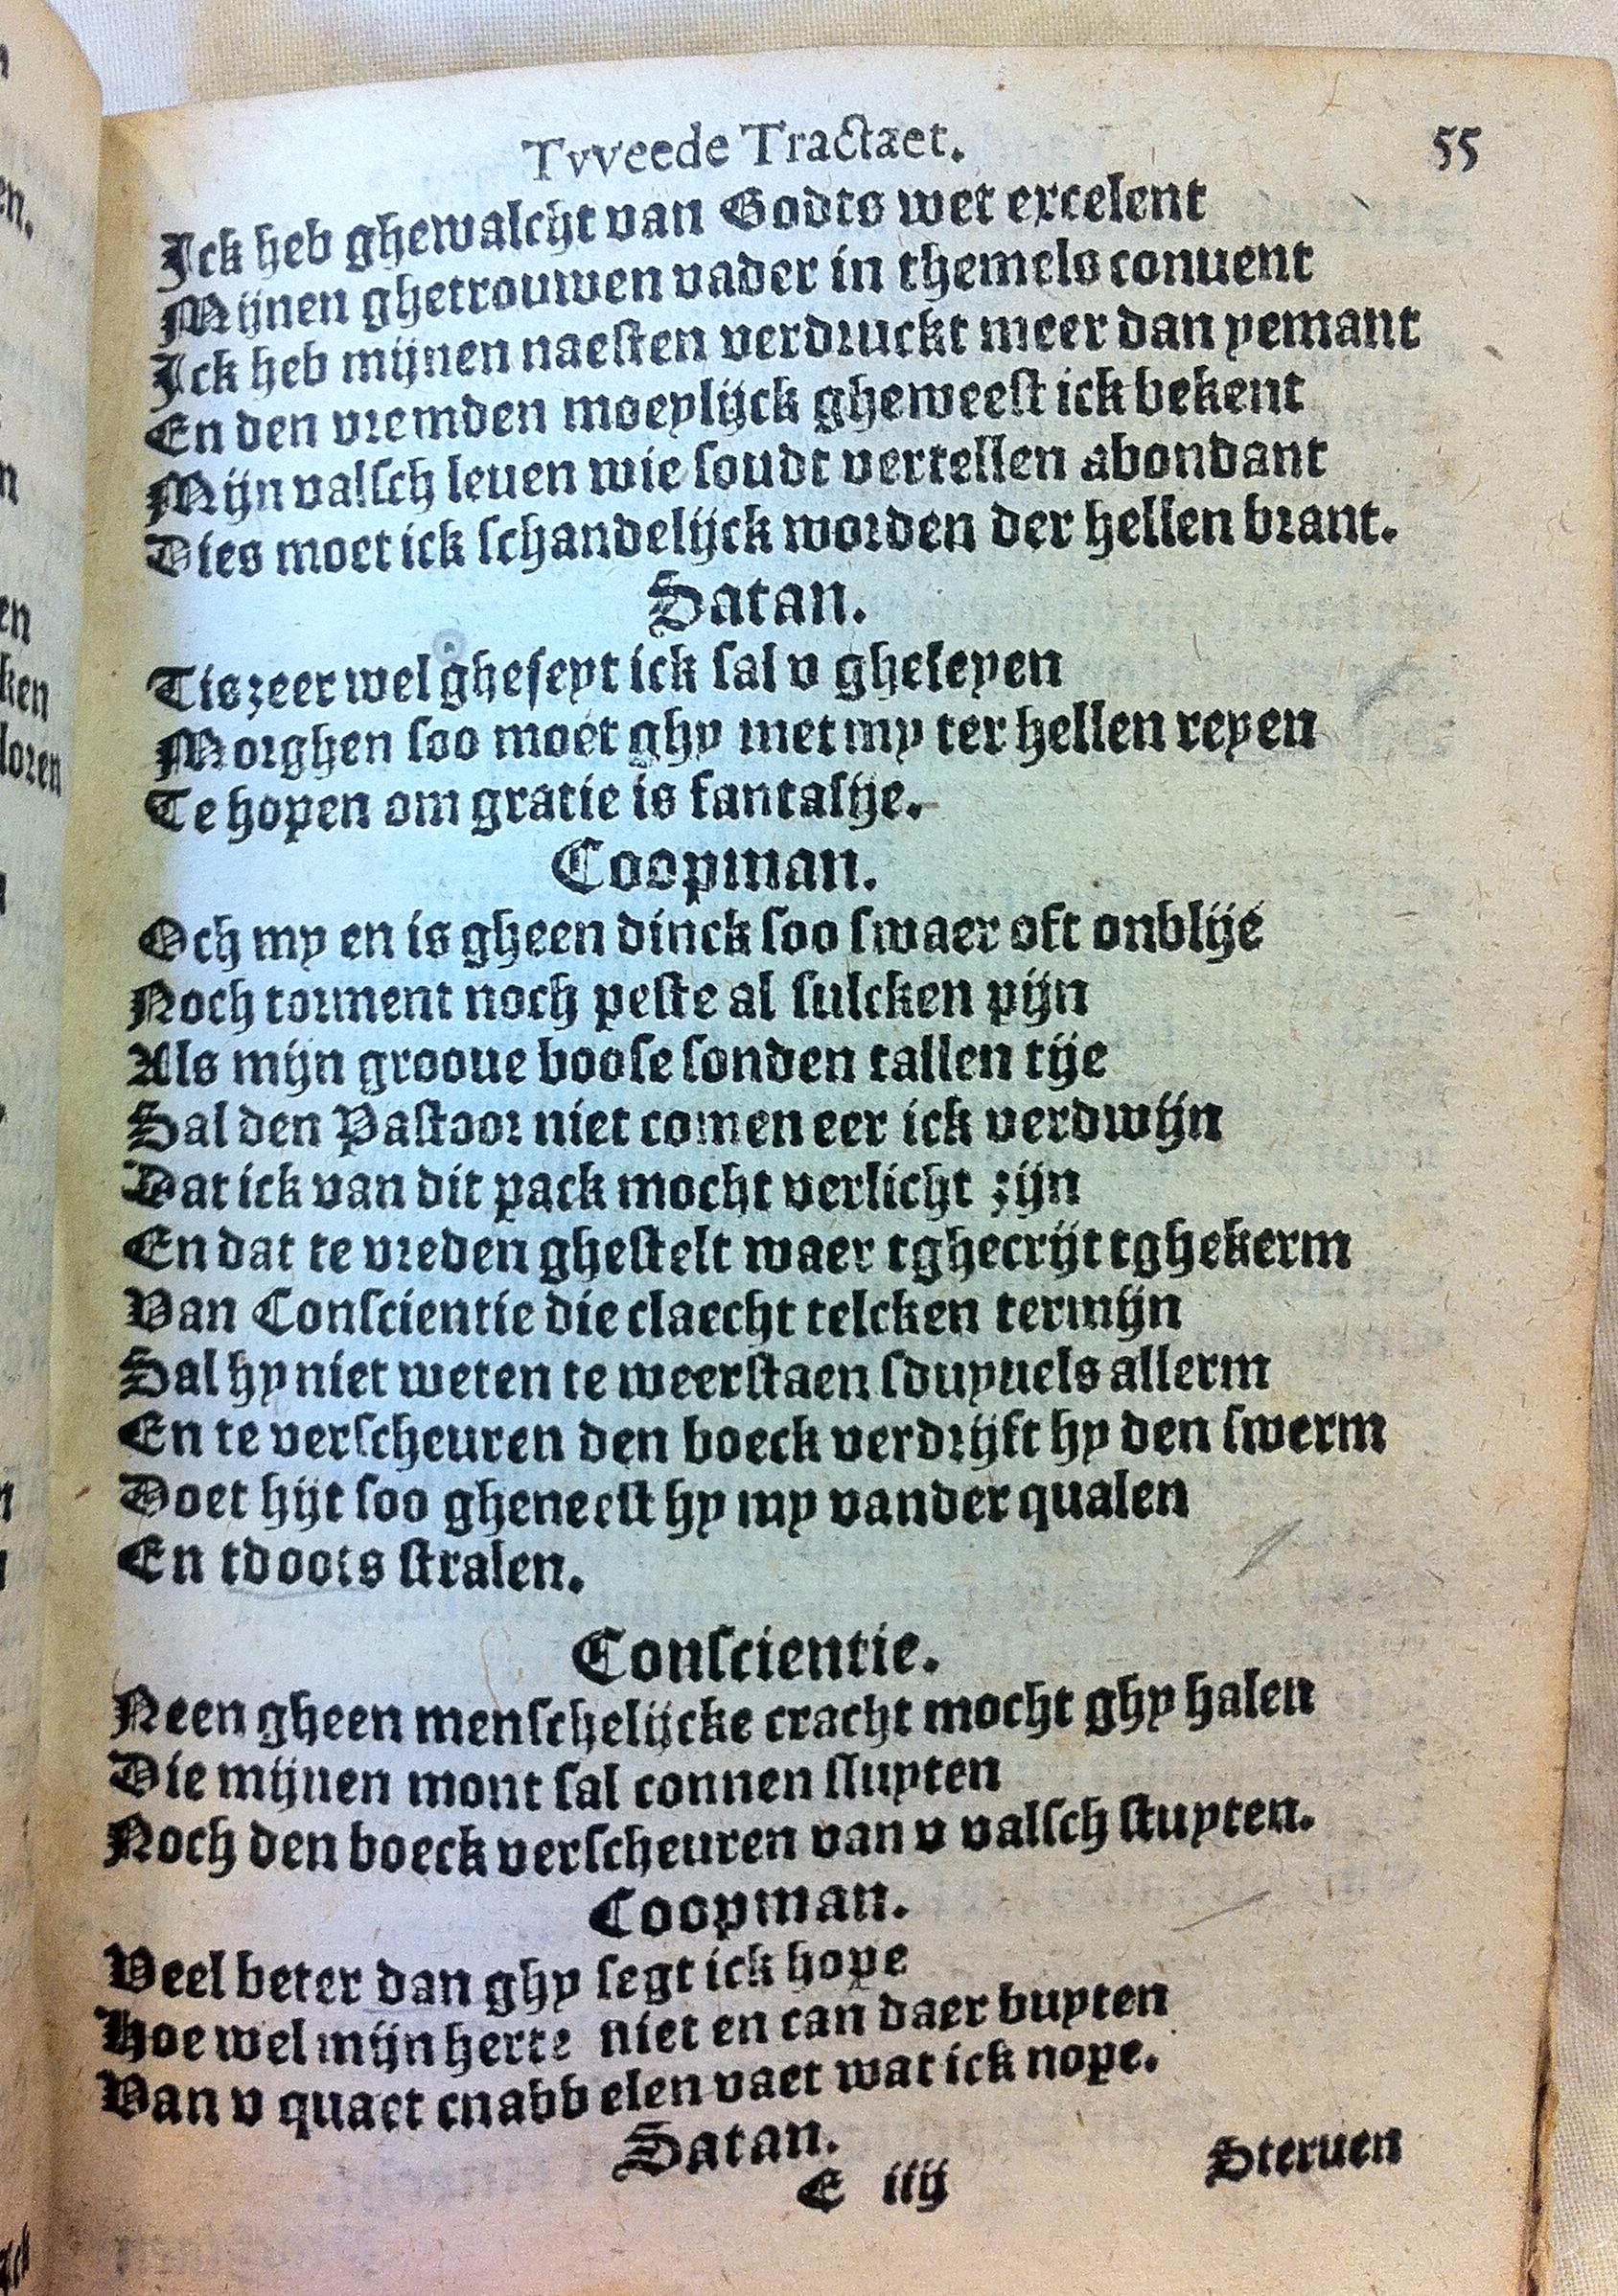 Tvveede Tractaet. 55
Ick heb ghewalcht van Godts wet excelent
Mijnen ghetrouwen vader in themels conuent
Ick heb mijnen naesten verdruckt meer dan yemant
En den vremden moeylijck gheweest ick bekent
Mijn valsch leuen wie soudt vertellen abondant
Dies moet ick schandelijck worden der hellen brant.
Satan.
Tis zeer wel gheseyt ick sal v gheleyen
Morghen soo moet ghy met my ter hellen reyen
Te hopen om gratie is fantasije.
Coopman.
Och my en is gheen dinck soo swaer oft onblije
Noch torment noch peste al sulcken pijn
Als mijn grooue boose sonden tallen tije
Sal den Pastoor niet comen eer ick verdwijn
Dat ick van dit pack mocht verlicht zijn
En dat te vreden ghestelt waer tghecrijt tghekerm
Van Conscientie die claecht telcken termijn
Sal hy niet weten te weerstaen sduyuels allerm
En te verscheuren den boeck verdrijft hy den swerm
Doet hijt soo gheneest hy my vander qualen
En tdoots stralen.
Conscientie.
Neen gheen menschelijcke cracht mocht ghy halen
Die mijnen mont sal connen sluyten
Noch den boeck verscheuren van v valsch stuyten.
Coopman.
Veel beter dan ghy segt ick hope
Hoe wel mijn herte niet en can daer buyten
Van v quaet cnabbelen vaet wat ick nope.
Satan.
E iiij Steruen